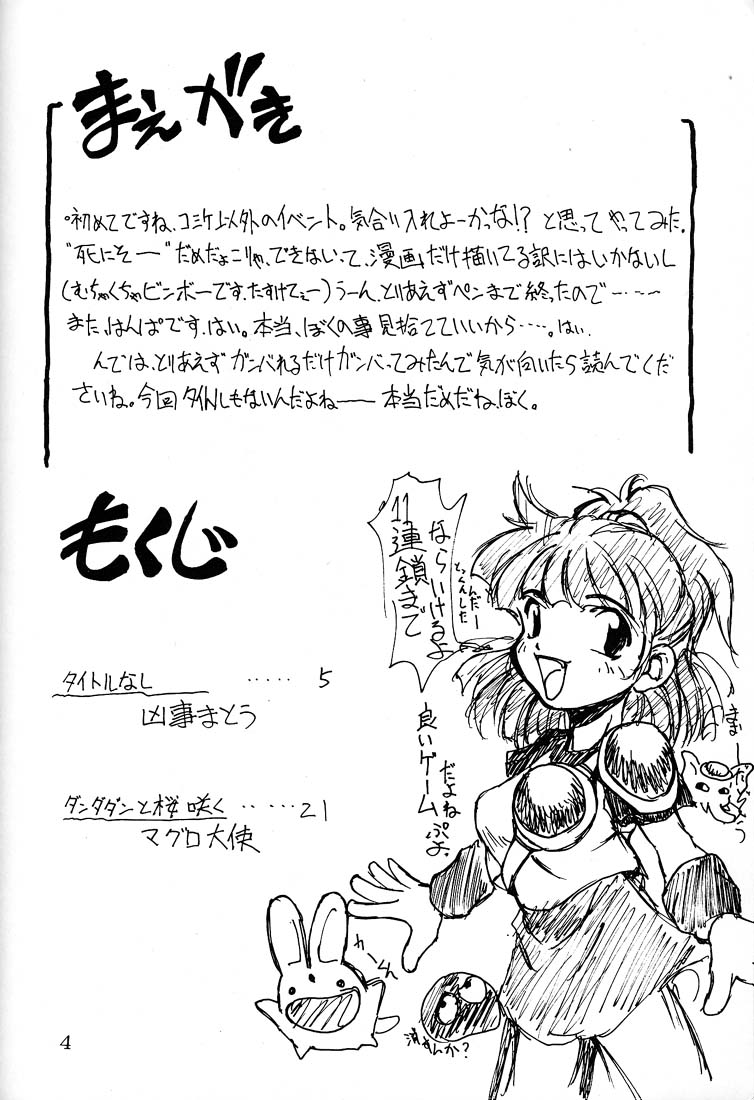 まえがき
。初めてですね、コミケ以外のイベント。気合い入れよーかな!?と思ってやってみた。
"死にそー"だめだよこりゃ、できないって、漫画だけ描いてる訳にはいかないし
(むちゃくちゃビンボーです、たすけてぇー)うーん、とりあえずペンまで終ったので・---
また、はんぱです、はい。本当、ぼくの事見捨てていいから‥‥。はい、
んでは、とりあえずガンバれるだけガンバってみたんで気が向いたら読んでくだ
さいね。今回タイトルもないんだよね――本当だめだね、ぼく。
もくじ
タイトルなし ‥‥‥ 5
凶事まとう
ダンダダンと桜咲く ‥‥‥ 21
マグロ大使
11連鎖まで
ならいけるよ
とっくんした
んだー
良いゲーム
だよね
ぷよ、
わーん
済まんか?
4